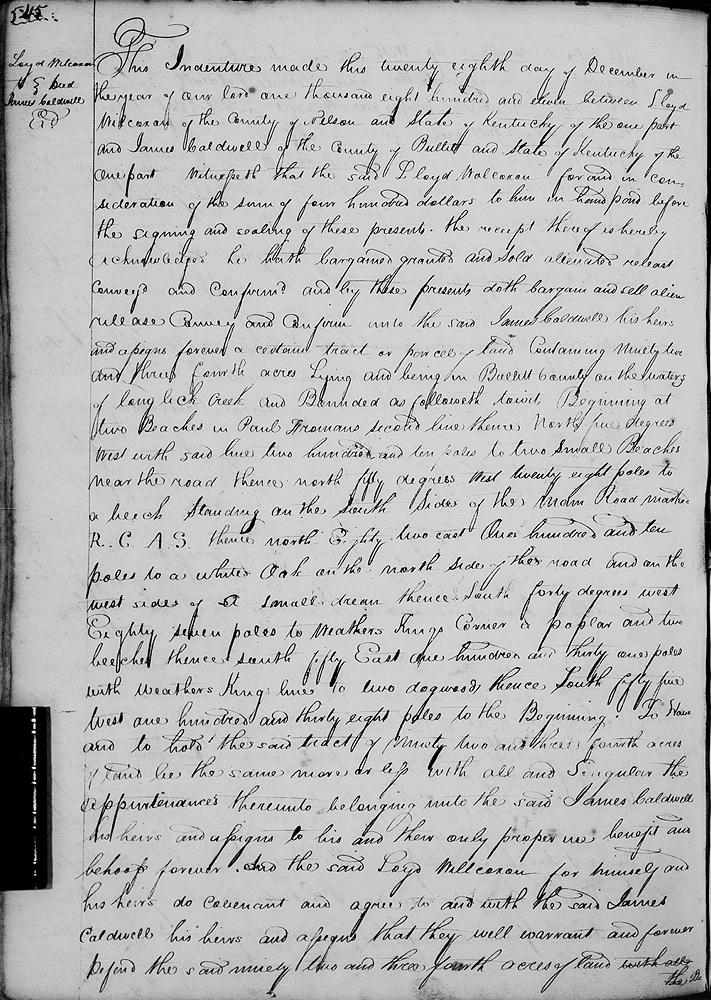 545
Loyd Wilcoxon
to } Deed
James Caldwell
This Indenture made this twenty eighth day of December in
the year of our lord one thousand eight hundred and eleven between Lloyd
Wilcoxon of the County of Nelson and State of Kentucky of the one part
and James Caldwell of the County of Bullet and State of Kentucky of the
one part Witnesseth that the said Lloyd Wolcoxon for and in con=
sideration of the sum of four hundred dollars to him in hand paid before
the signing and sealing of these presents. the receipt thereof is hereby
acknowledged he hath bargained granted and sold alienated release
Convey'd and Confirm'd and by these presents doth bargain and sell alien
release Convey and Confirm unto the said James Caldwell his heirs
and assigns forever a certain tract or parcel of land Containing Ninety two
and three fourth acres Lying and being in Bullett County on the waters
of long lick Creek and Bounded as followeth towit, Beginning at
two Beaches in Paul Fromans second line thence North five degrees
West with said line two hundred and ten poles to two Small Beaches
near the road thence north fifty degrees West twenty eight poles to
a beech Standing on the South Side of the main Road marked
R. C. A. S. thence north Eighty two east One hundred and ten
poles to a white Oak on the north side of the road and on the
west side of a small drean thence South forty degrees west
Eighty seven poles to Weathers Kings Corner a poplar and two
beeches thence south fifty East one hundred and thirty one poles
with Weathers King line to two dogwoods thence South fifty five
West one hundred and thirty eight poles to the Beginning. To Have
and to hold the said tract of Ninety two and three fourth acres
of land be the same more or less with all and Singular the
appurtenances thereunto belonging unto the said James Caldwell
his heirs and assigns to his and their only proper use benefit and
behoof forever. And the said Loyd Willcoxon for himself and
his heirs do Covenant and agree to and with the said James
Caldwell his heirs and assigns that they well warrant and forever
Defend the said ninety two and three fourth acres of land with all
the